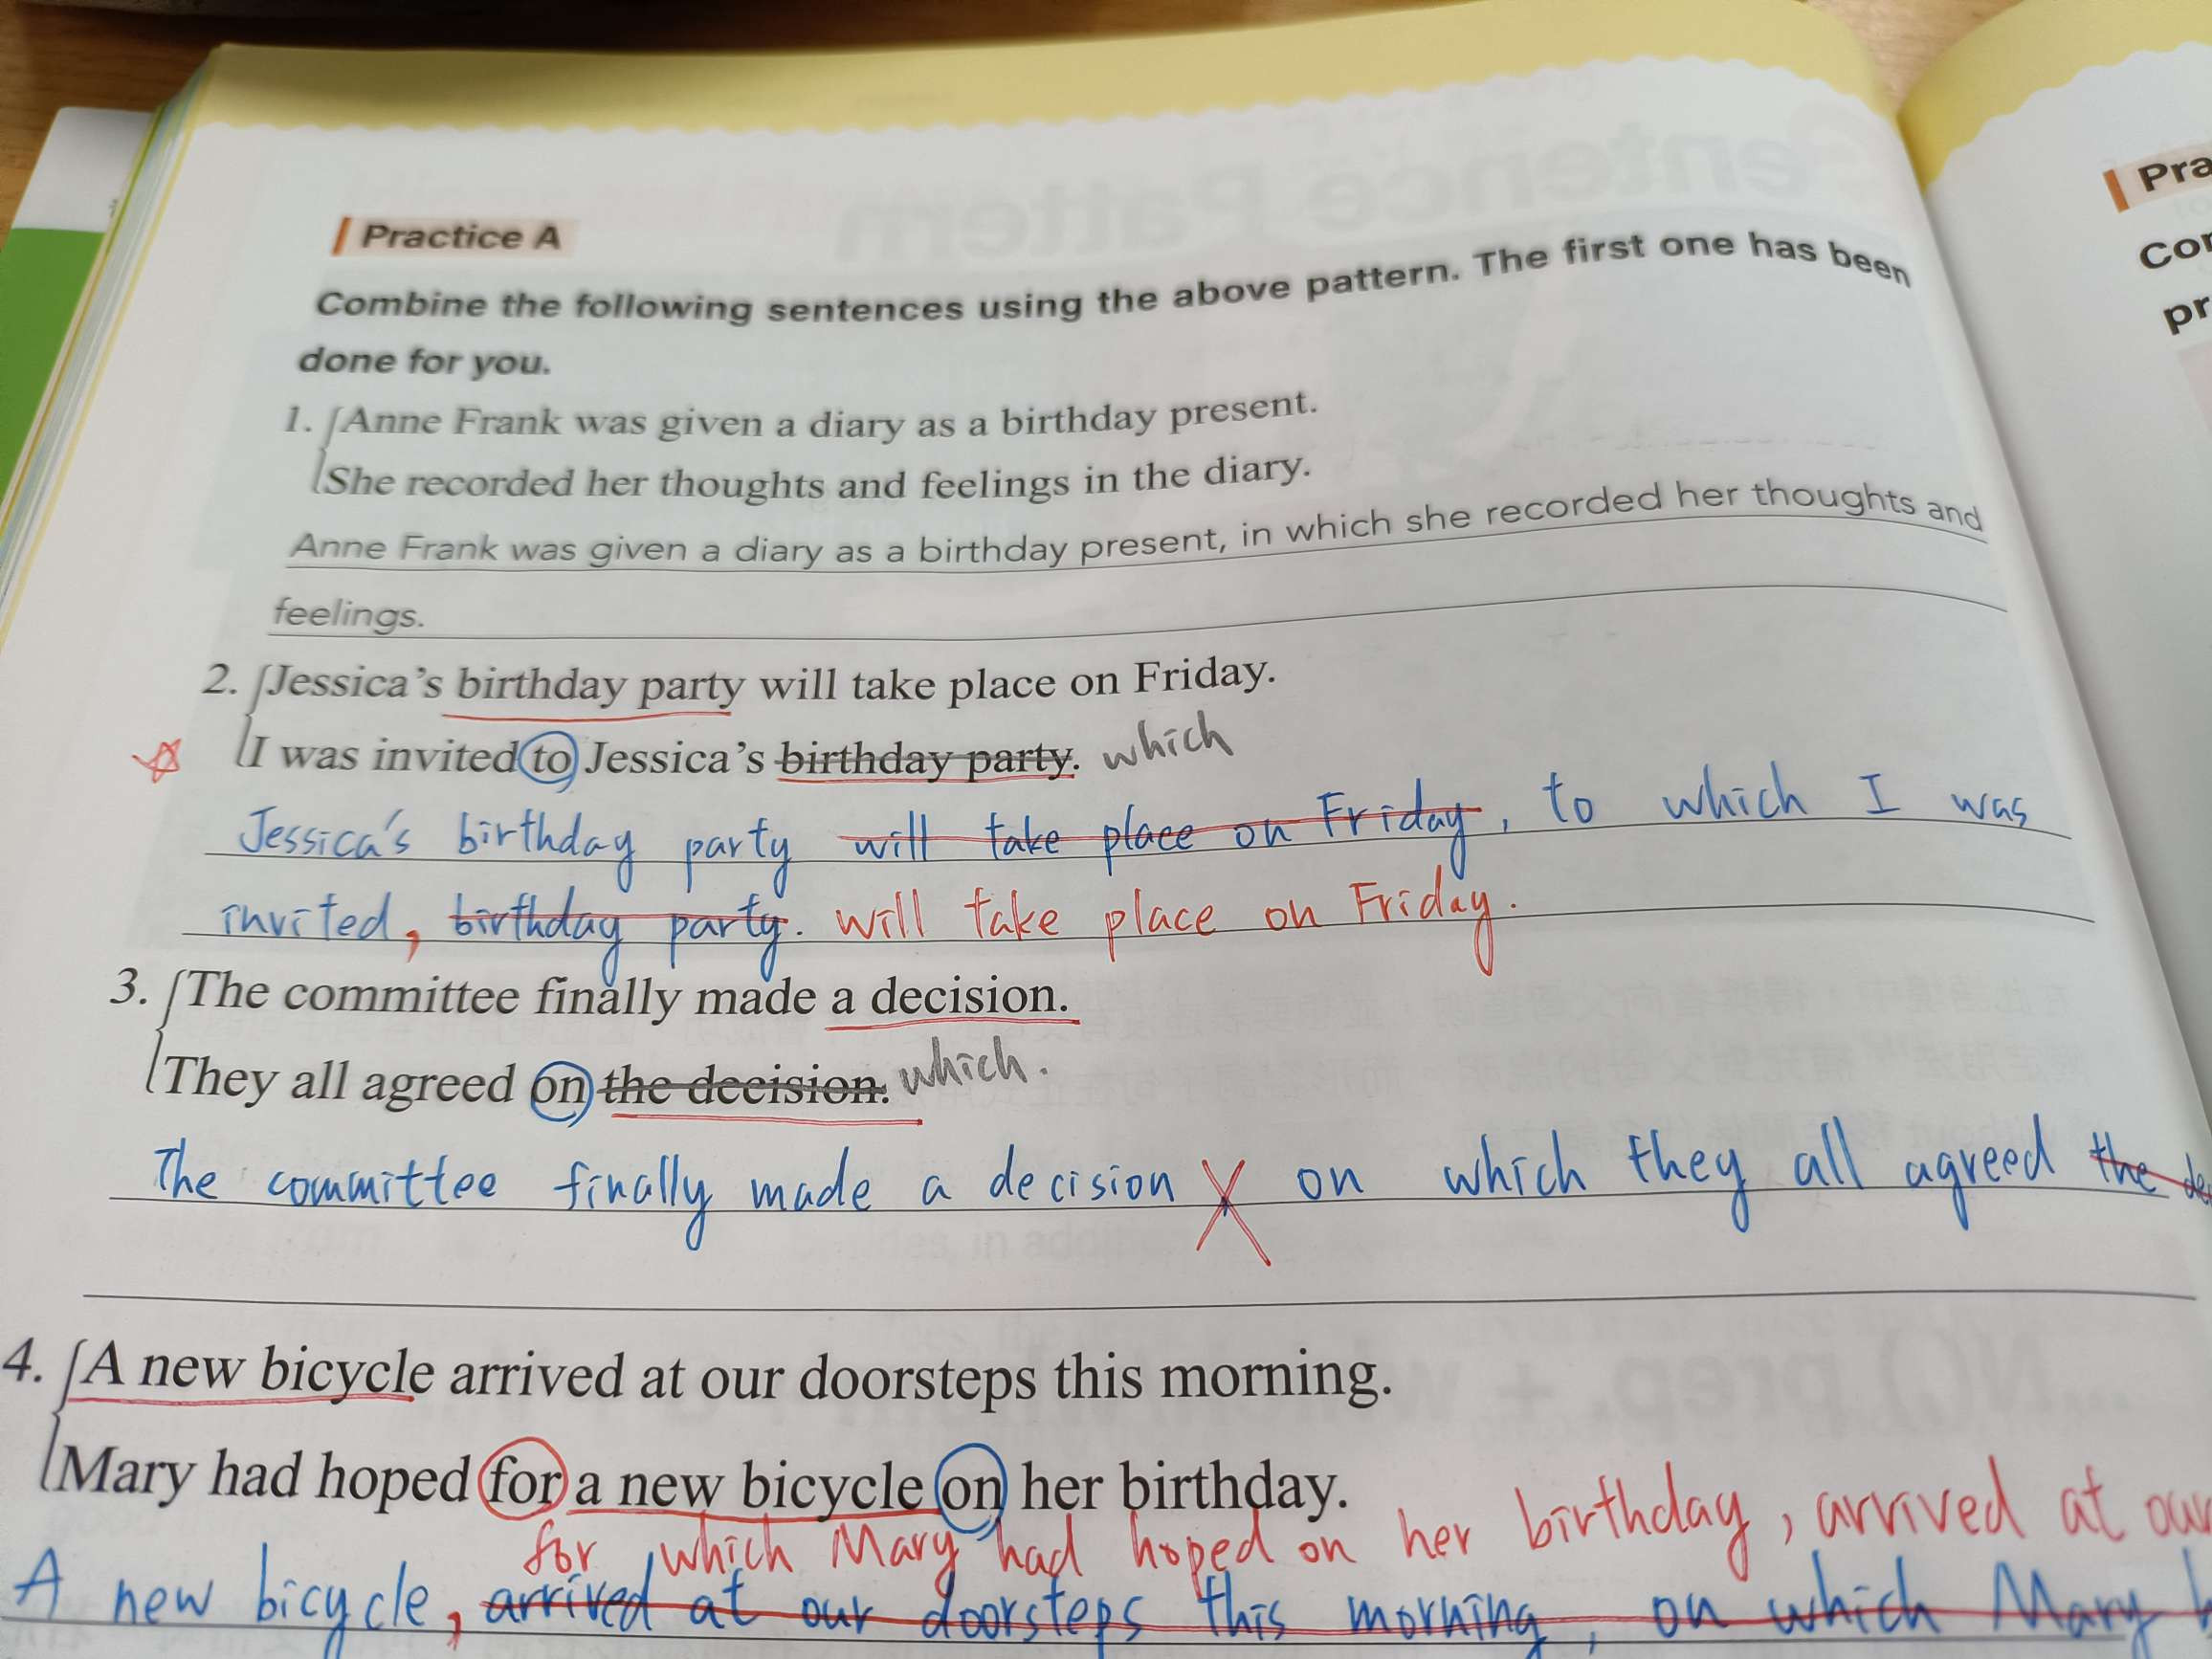 Practice A
Combine the following sentences using the above pattern. The first one has been
done for you.
1. Anne Frank was given a diary as a birthday present.
She recorded her thoughts and feelings in the diary.
Anne Frank was given a diary as a birthday present, in which she recorded her thoughts and
feelings.
2. Jessica's birthday party will take place on Friday.
I was invited to Jessica's birthday party. which
Jessica's birthday party will take place on Friday, to which I was
invited, birthday party. will take place on Friday.
3. The committee finally made a decision.
They all agreed on the decision. which.
The committee finally made a decision on which they all agreed the
4. A new bicycle arrived at our doorsteps this morning.
Mary had hoped for a new bicycle on her birthday.
for which Mary had hoped on her birthday, arrived at our
A new bicycle, arrived at our doorsteps this morning, on which Mary
Pra
Com
pr